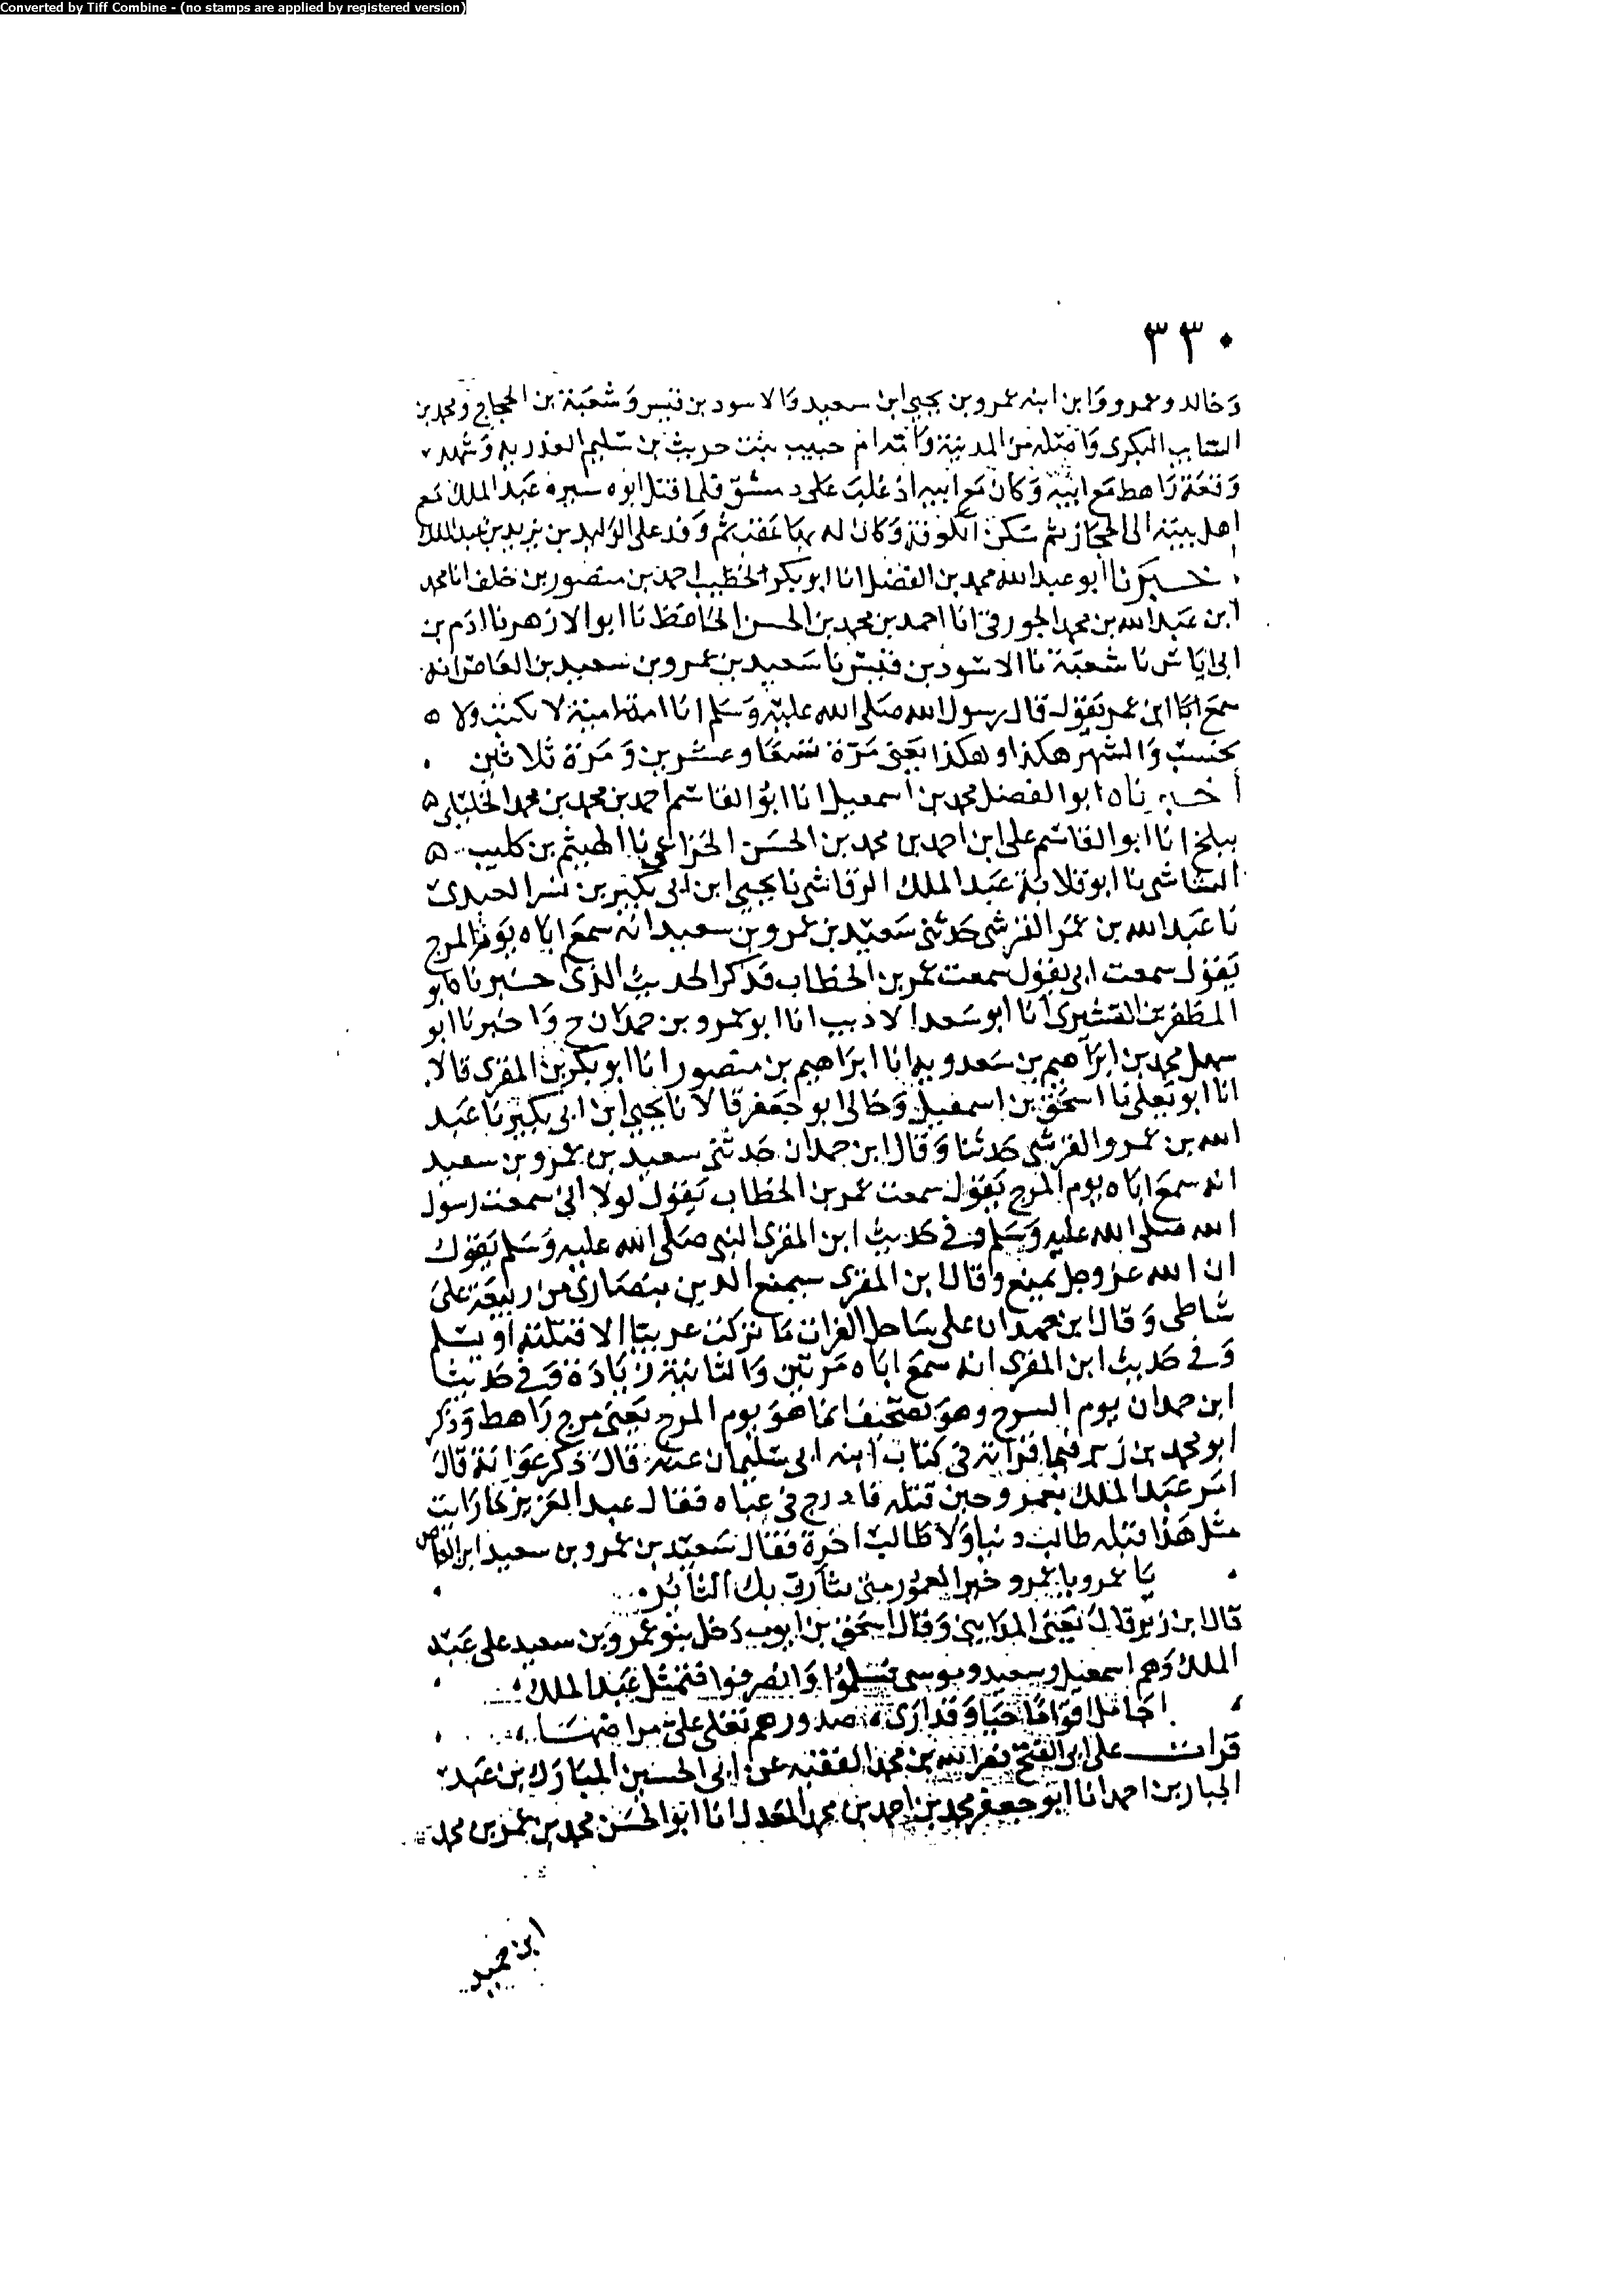 Converted by Tiff Combine - (no stamps are applied by registered version)
٣٣٠
وخالد وعمرو وابن ابنه عمرو بن يحيى ابن سعيد والاسود بن قيس وشعبة بن الحجاج ومحمد بن
السائب البكري واصله من المدينة وامه ام حبيب بنت حريث بن سليم العذرية وشهد
وقعة راهط مع ابيه وكان مع ابيه اذ غلب على دمشق فلما قتل ابوه سيره عبد الملك مع
اهل بيته الى الحجاز ثم سكن الكوفة وكان له بها عقب ثم وفد على الوليد بن يزيد بن عبد الملك
اخبرنا ابو عبد الله محمد بن الفضل انا ابو بكر الخطيب احمد بن منصور بن خلف انا محمد
ابن عبد الله بن محمد الجورقي انا احمد بن محمد بن الحسن الحافظ نا ابو الازهر نا ادم بن
ابي اياس نا شعبة نا الاسود بن قيس نا سعيد بن عمرو بن سعيد بن العاص انه
سمع ابا ابن عمر يقول قال رسول الله صلى الله عليه وسلم انا امة امية لا نكتب ولا
نحسب والشهر هكذا وهكذا يعني مرة تسعا وعشرين ومرة ثلاثين
أخبرناه ابو الفضل محمد بن اسمعيل انا ابو القاسم احمد بن محمد بن محمد الخليلي
ببلخ انا ابو القاسم علي ابن احمد بن محمد بن الحسن الخزاعي نا الهيثم بن كليب
الشاشي نا ابو قلابة عبد الملك الرقاشي نا يحيى ابن ابي بكير بن نسر العبدي
نا عبد الله بن عمر القرشي حدثني سعيد بن عمرو بن سعيد انه سمع اباه يوم المرج
يقول سمعت ابي يقول سمعت عمر بن الخطاب فذكر الحديث الذي اخبرناه ابو
المظفر بن القشيري انا ابو سعد الاديب انا ابو عمرو بن حمدان ح واخبرنا ابو
سهل محمد بن ابراهيم بن سعدويه انا ابراهيم بن منصور انا ابو بكر بن المقري قالا
انا ابو يعلى نا اسحق بن اسمعيل وخالي ابو جعفر قالا نا يحيى ابن ابي بكير نا عبد
الله بن عمرو القرشي حدثنا وقال ابن حمدان حدثني سعيد بن عمرو بن سعيد
انه سمع اباه يوم المرج يقول سمعت عمر بن الخطاب يقول لولا اني سمعت رسول
الله صلى الله عليه وسلم وفي حديث ابن المقري النبي صلى الله عليه وسلم يقول
ان الله عز وجل يمنع وقال ابن المقري سيمنع الدين بنصارى من ربيعة على
شاطي وقال ابن حمدان على ساحل الفرات ما تركت عربيا الا قتلته او يسلم
وفي حديث ابن المقري انه سمع اباه مرتين والثانية زيادة وفي حديث
ابن حمدان يوم السرح وهو تصحيف انما هو يوم المرج يعني مرج راهط وذكر
ابو محمد بن زبر فيما قراته في كتاب ابنه ابي سليمان عنه قال ذكر عوانة قال
امر عبد الملك بعمرو حين قتله فادرج في عباه فقال عبد العزيز ما رايت
مثل هذا قتله طالب دنيا ولا طالب اخرة فقال سعيد بن عمرو بن سعيد ابن العاص
يا عمرو يا عمرو خير العمور متى يثارك بك الثائر
قال ابن زبر قال يعني المدايني وقال اسحق بن ايوب دخل بنو عمرو بن سعيد على عبد
الملك وهم اسمعيل وسعيد وموسى فسلموا وانصرفوا فتمثل عبد الملك
اجامل اقواما حيا وقد ارى صدورهم تغلي علي مراضها
قرات على ابي الفتح نصر الله بن محمد الفقيه عن ابي الحسين المبارك بن عبد
الجبار بن احمد انا ابو جعفر محمد بن احمد بن محمد المعدل انا ابو الحسن محمد بن عمر بن محمد
ابن حميد